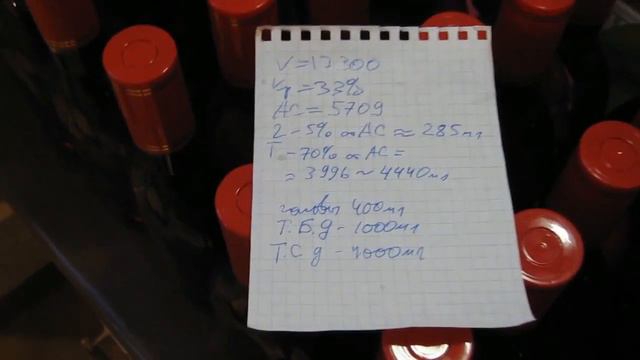 V=13300
Кр=33%
АС=5709
2 -5% от АС ≈ 285 мл
Т -70% от АС =
= 3996 ~ 4440 мл
головы 400 мл
Т.Б.д - 1000 мл
Т.С д - 4000 мл